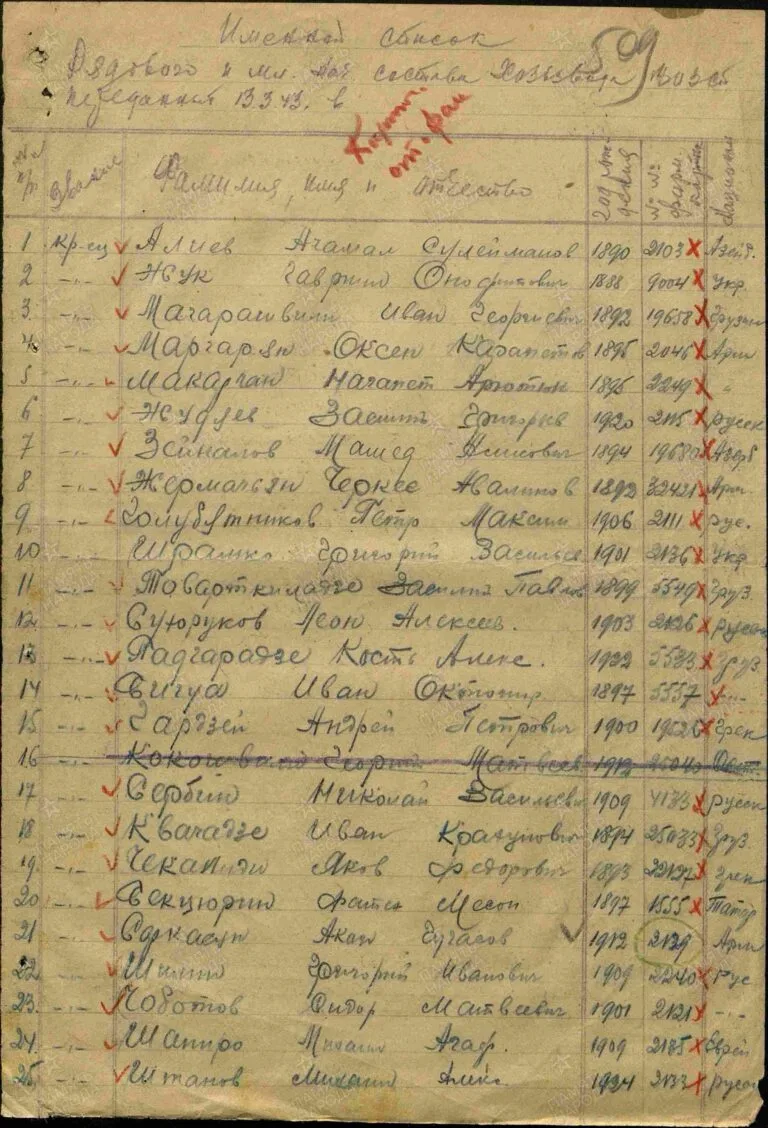 Именной список
Рядового и мл. нач состава
переданных 13.3.43. в
509
№ п/п Звание Фамилия, имя и отчество год рождения №№
1 кр-ец Алиев Агамал Сулейманов 1890 2103 Азейд.
2 -"- Жук Гаврил 1888 9004 Укр
3 -"- Магарашвили Иван Георгиевич 1892 19658 Грузин
4 -"- Маргарян Оксен Карапетов 1895 2046 Арм
5 -"- Нагапет 1895 2249 "
6 -"- Жудлев Василь Григорьев 1920 2115 русск
7 -"- Зейналов Мамед 1894 19680 Азерб
8 -"- Черкес 1892 32421 Арм
9 -"- Голубятников Петр Максим 1906 2111 рус.
10 Шрамко Григорий Василье 1901 2136 Укр
11 -"- Товарткиладзе Василий Павлов 1899 5549 Груз.
12 -"- Суюруков Леон Алексеев. 1903 2126 русск
13 -"- Падгарадзе Кость Алекс. 1922 5533 Груз
14 -"- Бигуа Иван 1897 5557 -"-
15 -"- Гардзей Андрей Петрович 1900 19526 Грек
16 Георгий Матвеев 1912
17 -"- Сербин Николай Васильеви 1909 4133 русск
18 -"- Квачадзе Иван 1894 25033 Груз.
19 -"- Чекалиди Яков Федорович 1893 32127 Грек
20 -"- Бекцюрин 1897 1555 Татар
21 -"- Саркасян Акоп 1912 2129 Арм
22 -"- Шилин Григорий Иванович 1909 2240 Рус
23 -"- Чоботов Сидор Матвеевич 1901 2121 -"-
24 -"- Шапиро Михаил Агаф. 1909 2185 Еврей
25 -"- Штанов Михаил Алекс 1924 2033 русск